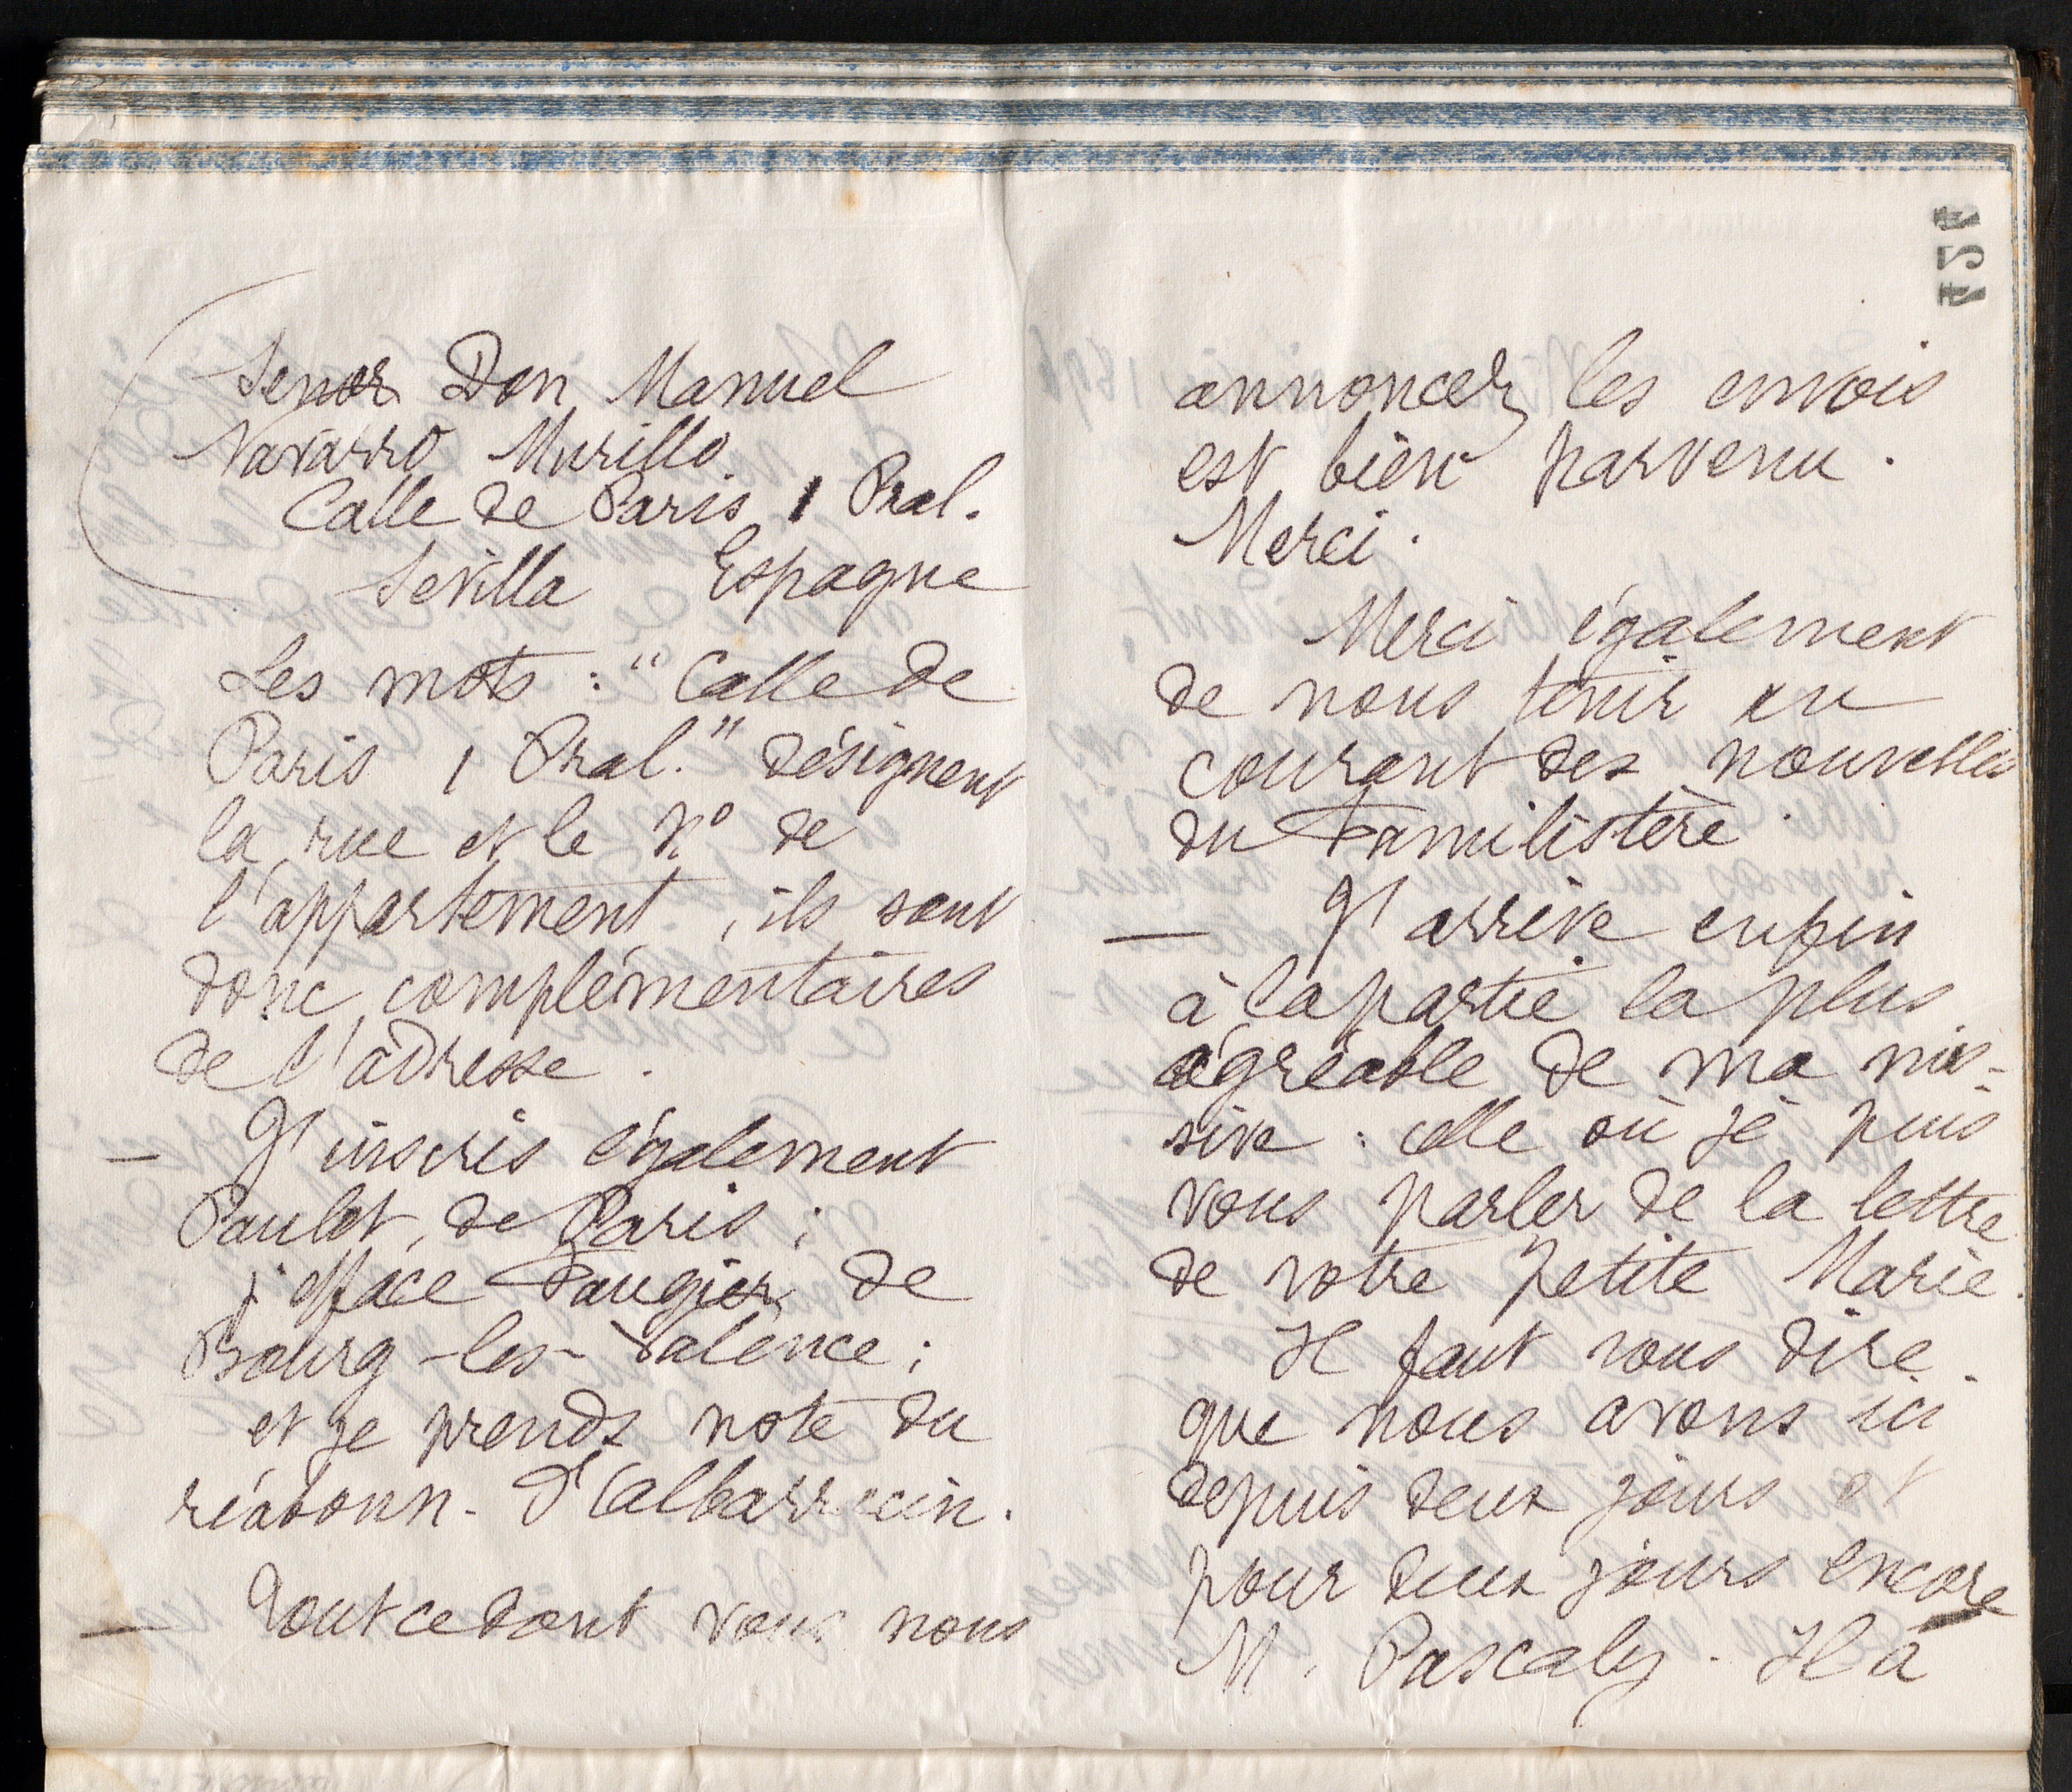 Senor Don Manuel
Navarro Murillo
Calle de Paris 1 Pral.
Sevilla Espagne
Les mots : "Calle de
Paris 1 Pral." désignent
la rue et le No de
l'appartement, ils sont
donc complémentaires
de l'adresse.
— J'inscris également
Paulet, de Paris ;
j'efface Faugier de
Bourg-les-Valence ;
et je prends note du
réabonn. d'
— Tout ce dont vous nous
annoncez les envois
est bien parvenu.
Merci.
Merci également
de nous tenir au
courant des nouvelles
du Familistère.
— J'arrive enfin
à la partie la plus
agréable de ma mis-
sive : celle où je puis
vous parler de la lettre
de votre petite Marie.
Il faut vous dire
que nous avons ici
depuis deux jours et
pour deux jours encore
M. Pascaly. Il a